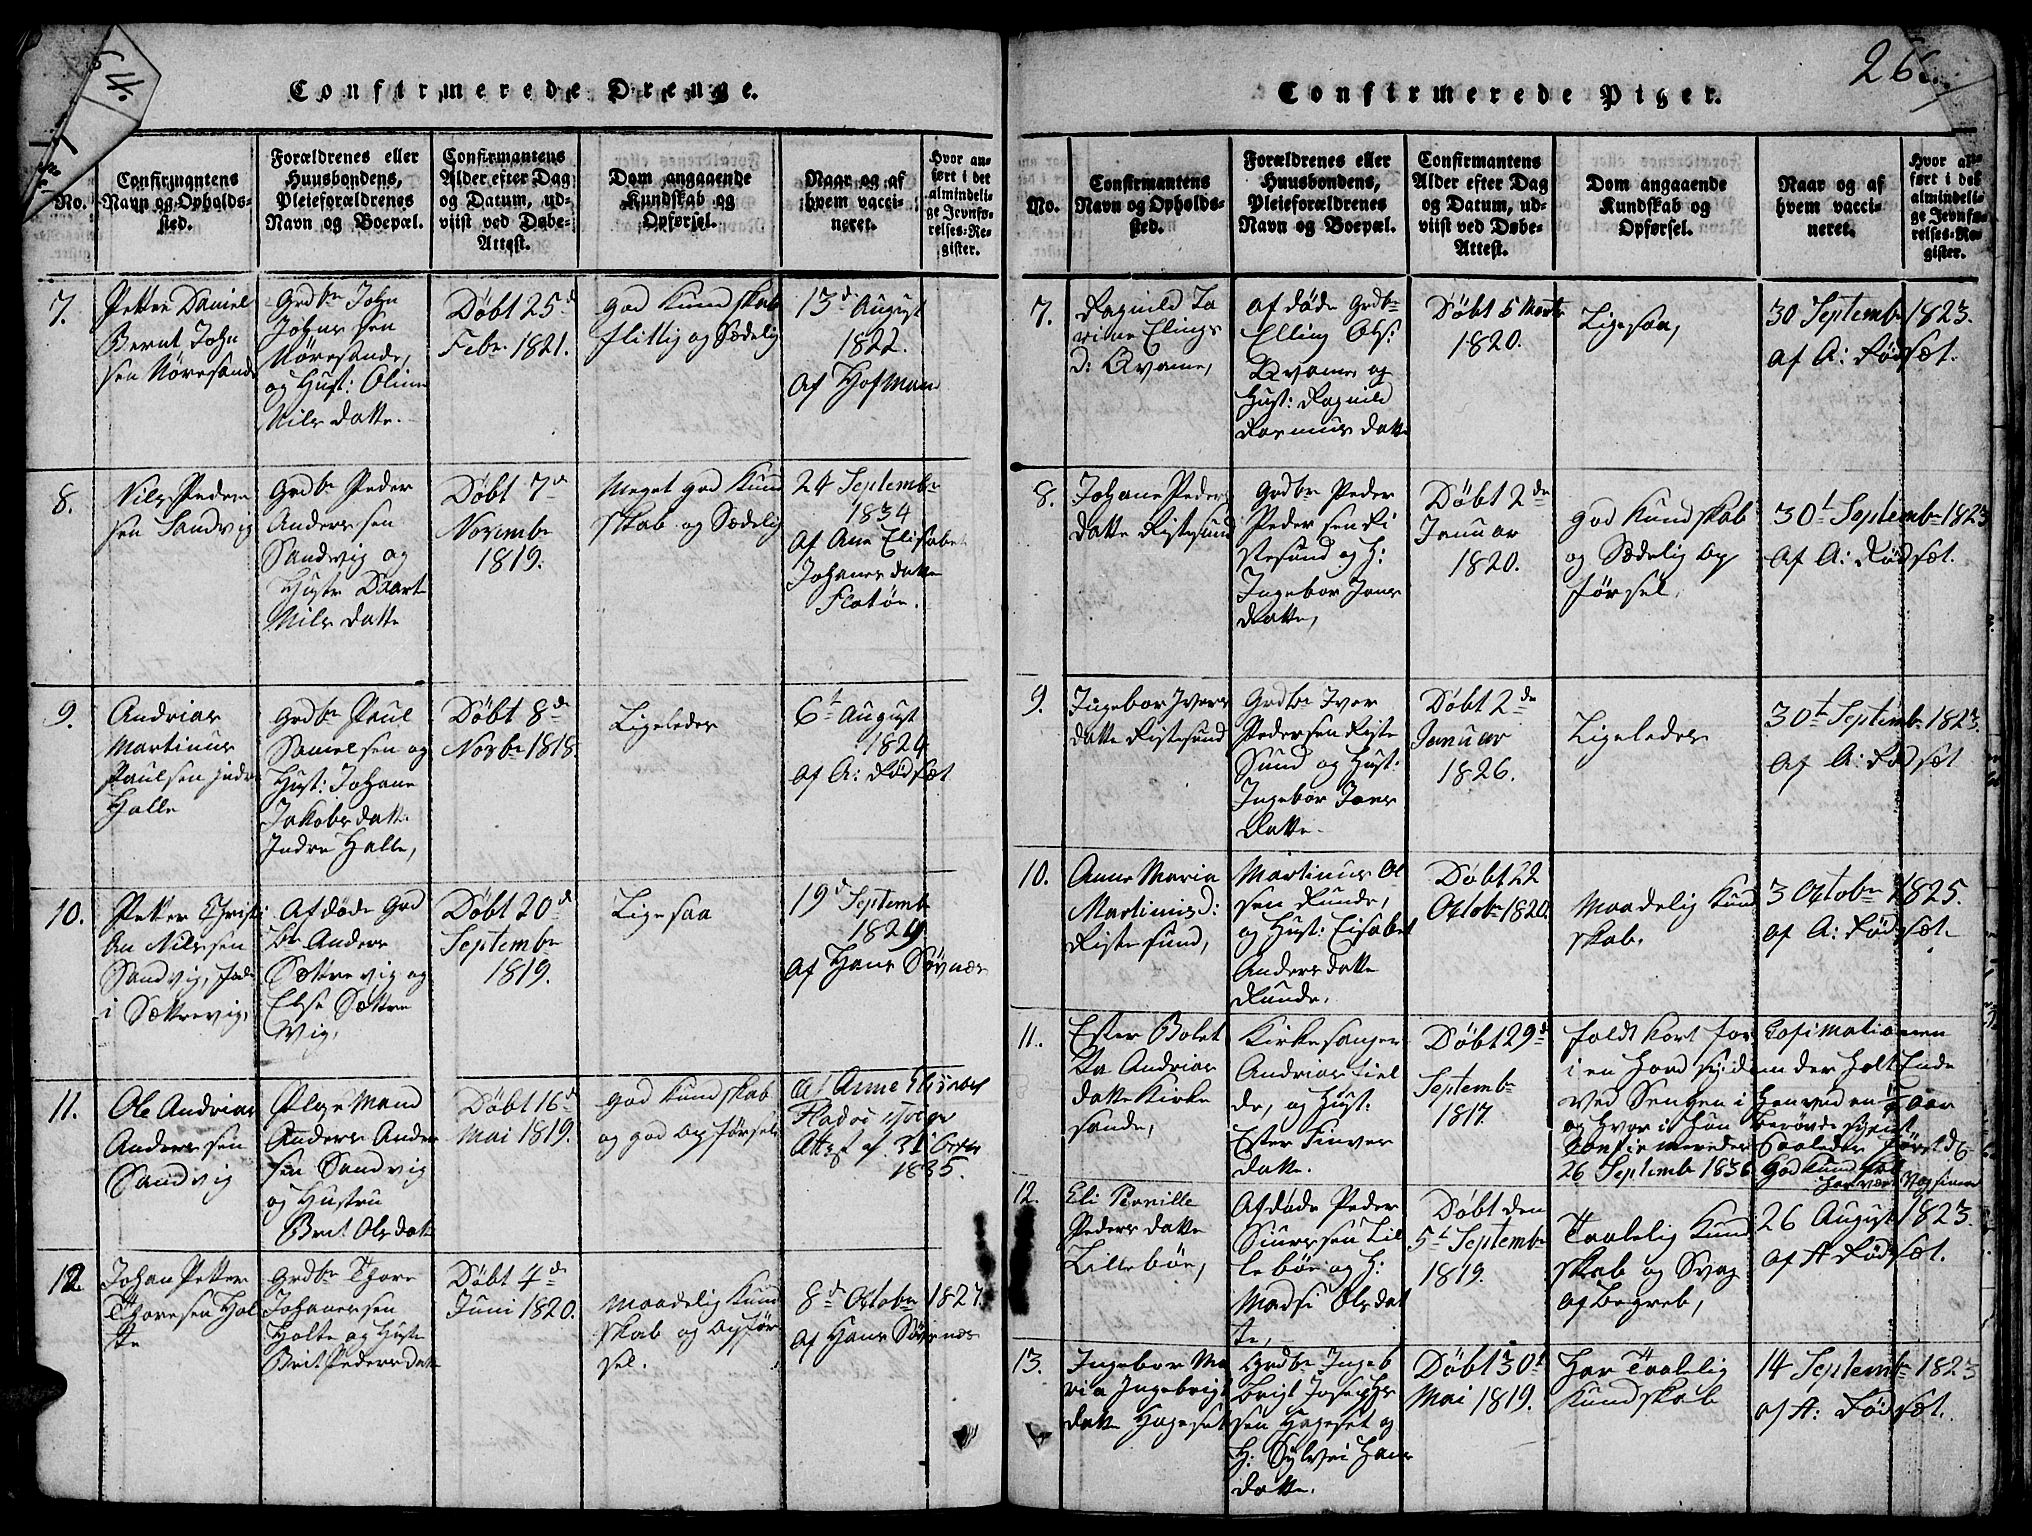 64.
Confirmerede Drenge.
No.
Confirmantens
Navn og Opholds-
sted.
Forældrenes eller
Huusbondens,
Pleieforældrenes
Navn og Boepæl.
Confirmantens
Alder efter Dag
og Datum, ud-
viist ved Døbe-
Attest.
Dom angaaende
Kundskab og
Opførsel.
Naar og af
hvem vacci-
neret.
Hvor an-
ført i det
almindeli-
ge Jevnfø-
relses-Re-
gister.
7.
Petter Daniel
Bernt John
sen Nøresande
Grdbr John
Johns sen
Nøresande,
og Hust: Oline
Nils datte.
Døbt 25d
Febr. 1821.
god Kundskab
flittig og Sædelig
13d August
1822.
af Hofman
8.
Nils Peder
sen Sandvig
Grdbr Peder
Anders sen
Sandvig og
Hustr
Nils datte
Døbt 7d
Novembr
1819.
Meget god Kund
skab og Sædelig
24 Septembr
1834
af Ane Elisabet
Johanes datte
Flatøe.
9.
Andrias
Martinus
Paulsen indre
Halle
Grdbr Paul
Samelsen og
Hust: Johane
Jakobs datt.
Indre Halle,
Døbt 8d
Novbr 1818
Ligeledes
6t August
1824
af A: Rødsæt
10.
Petter Christi
an Nilssen
Sandvig,
i Sættrevig,
Afdøde Grd
br Anders
Sættrevig og
Else Sættre
Vig,
Døbt 20d
Septembr
1819.
Ligesaa
19d Septembr
1829
af Hans Søvnæs
11.
Ole Andrias
Anderssen
Sandvig
Mand
Anders Ander
sen Sandvig
og Hustru
Brit Olsdatt
Døbt 16d
Mai 1819.
god Kundskab
og god Opførsel
af Anne Elisabet
Fladøe
Attest af. 31
1835.
12
Johan Petter
Thoresen Hol
te
Grdbr Thore
Johanessen
Holte og Hustr
Brit Pedersdatt
Døbt 4d
Juni 1820.
Maadelig Kund
skab og Opfør
sel.
8d Octobr 1827.
af Hans Søvnæs
266.
Confirmerede Piger.
No.
Confirmantens
Navn og Opholds-
sted.
Forældrenes eller
Huusbondens,
Pleieforældrenes
Navn og Boepæl.
Confirmantens
Alder efter Dag
og Datum, ud-
viist ved Døbe-
Attest.
Dom angaaende
Kundskab og
Opførsel.
Naar og af
hvem vacci-
neret.
Hvor an-
ført i det
almindeli-
ge Jevnfø-
relses-Re-
gister.
7.
Ragnild La
vine Elings
d: Qvame,
Afdøde Grdbr
Elling Ols:
Qvame, og
Hust: Ragnild
Rasmus datte
Døbt 5 Marts
1820.
Ligesaa,
30 Septembr 1823.
af A: Rødsæt.
8.
Johane Peders
datte Ristesund
Grdbr Peder
Peder sen Ri
stesund og H:
Ingebor Jons
datte,
Døbt 2de
Januar
1820.
god Kundskab
og Sædelig Op
førsel,
30t Septembr 1823
af A: Rødsæt.
9.
Ingebor Ivers
datte Ristesund
Grdbr Iver
Pedersen Riste
Sund og Hust:
Ingebor Jons
datte.
Døbt 2de
Januar
1826.
Ligeledes
30t Septembr 1823.
af A: Rødsæt
10.
Anne Maria
Martinusd:
Ristesund,
Martinus Ol
sen Runde,
og Hust: Elisabet
Anders datte
Runde,
Døbt 22
Octobr 1820.
Maadelig Kund
skab.
3 Octobr 1825.
af A: Rødsæt.
11.
Ester Bolet
ta Andrias
datte Kirke
sande,
Kirkesanger
Andrias Liel
de, og Hust:
Ester Finver
datte.
Døbt 29d
Septembr
1817.
faldt kort for Cofimationen
i en haard sygdom der holt Ende
ved Sengen i Henved en
og hvor i hun berøvde
Confir mereder saaledes
26 Septembr 1836. God Kundskab
har
12.
Eli Pernille
Peders datte
Lillebøe,
Afdøde Peder
Siurs sen Lil
lebøe og H:
Madsi Olsdat
te,
Døbt den
5t Septembr
1819.
Taalelig Kund
skab og Svag
af begreb,
26 August 1823.
af A Rødsæt.
13.
Ingebor Ma
ria Ingebrigt
datte Hageset
Grdbr Ingeb
brigt Josephs
sen Hageset og
H: Sylvei Hans
datte.
Døbt 30t
Mai 1819.
Har Taalelig
Kundskab
14 Septembr 1823
af A: Rødsæt.